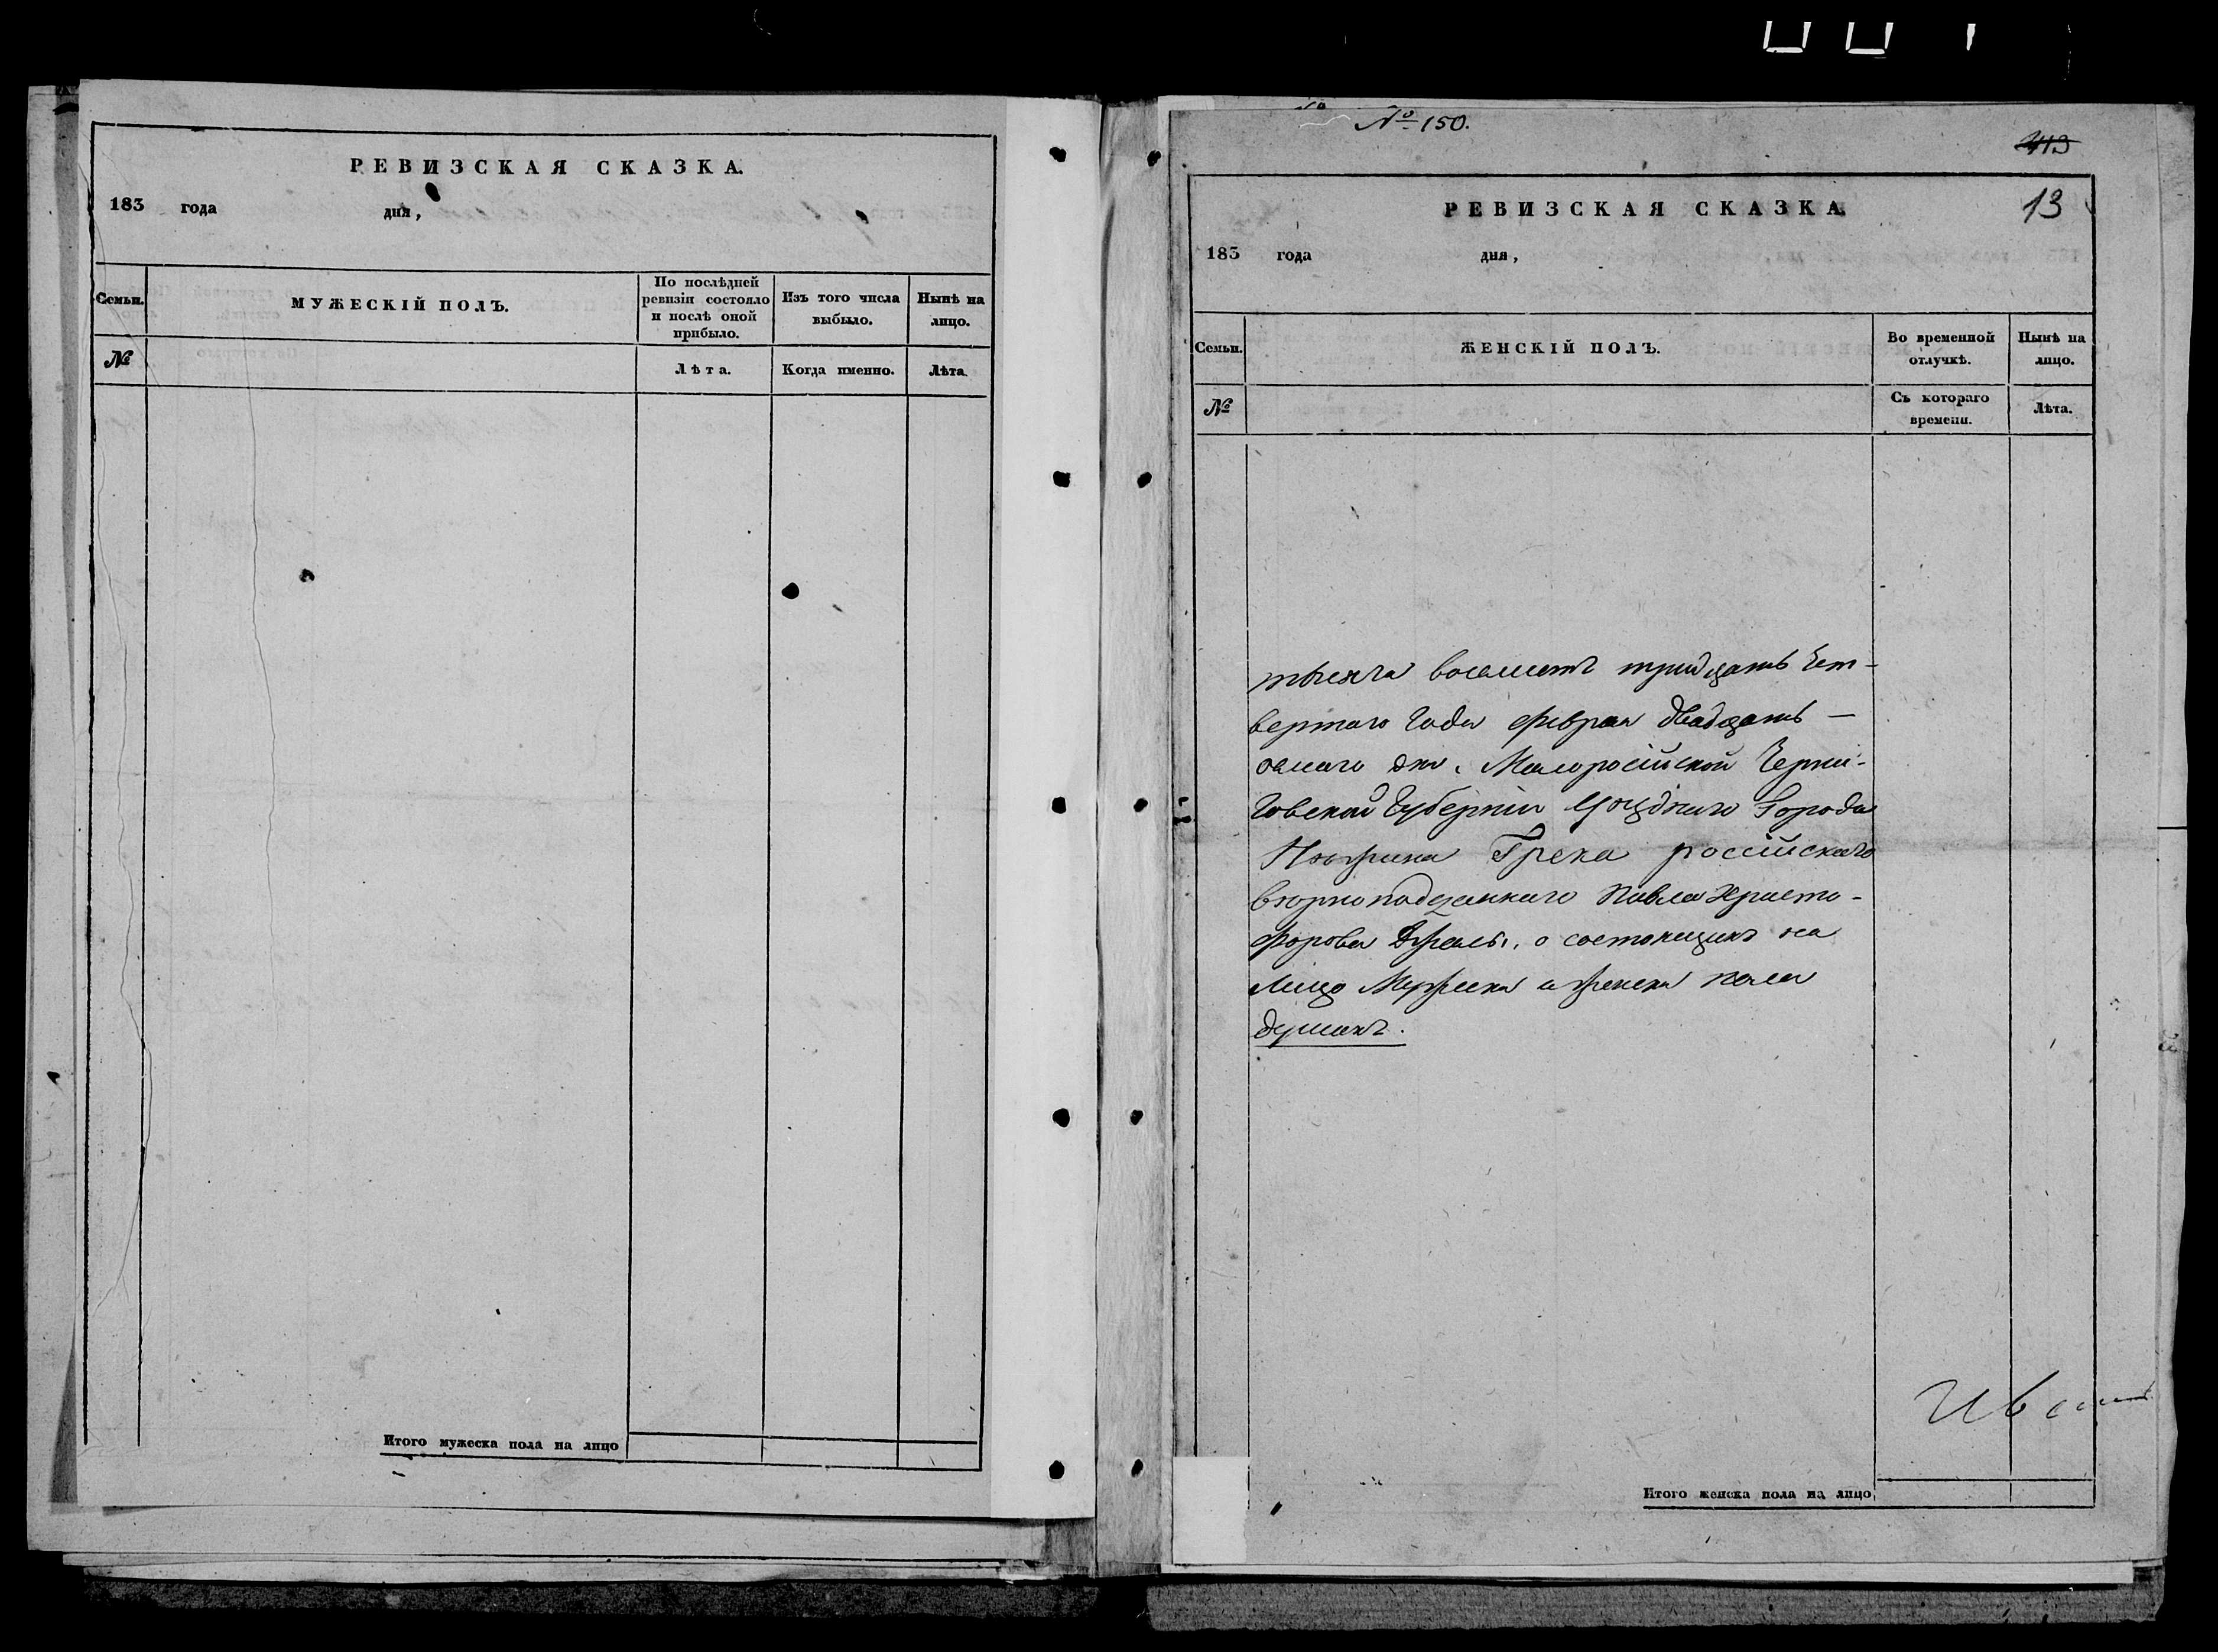 РЕВИЗСКАЯ СКАЗКА.
183 года дня,
Семьи.
МУЖЕСКІЙ ПОЛЪ.
По послѣдней ревизіи состояло и послѣ оной прибыло.
Изъ того числа выбыло.
Нынѣ на лицо.
№
Лѣта.
Когда именно.
Лѣта
Итого мужеска пола на лицо
№ 150.
413
13
РЕВИЗСКАЯ СКАЗКА.
183 года дня,
Семьи.
ЖЕНСКІЙ ПОЛЪ.
Во временной отлучкѣ.
Нынѣ на лицо.
№
Съ котораго времени.
Лѣта.
тысяча восемсотъ тридцать чет-
вертаго года февраля двадцать —
осмаго дня. Малоросійской Черни-
говской Губерніи уѣзднаго Города
Нѣжина Грека російскаго
вѣрноподданнаго Павла Христо-
форова о состоящихъ на
лицо Мужеска и женска пола
душахъ.
Итого женска пола на лицо